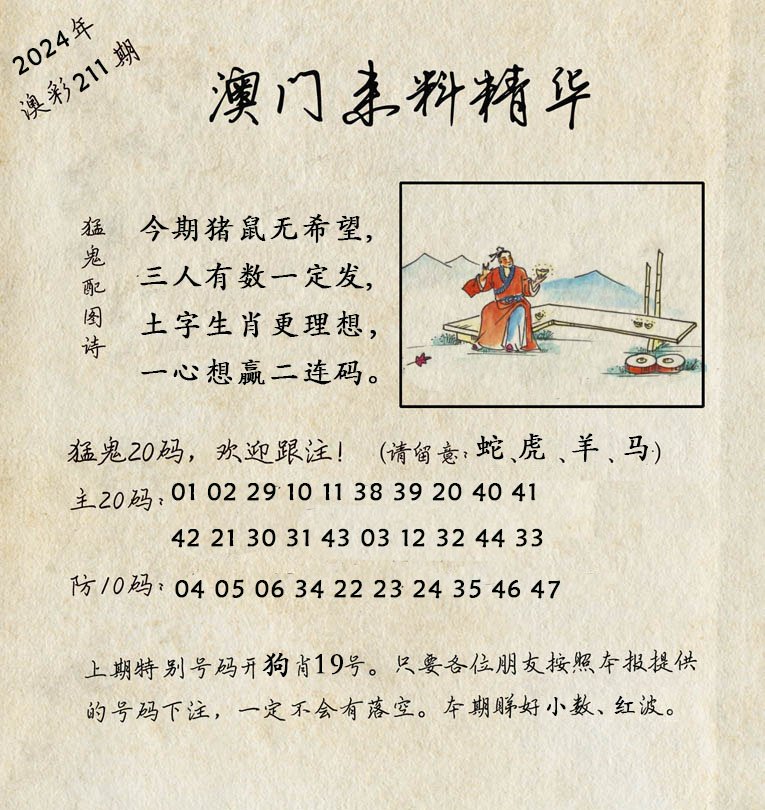 2024年
澳彩211期
澳门来料精华
猛鬼配图诗
今期猪鼠无希望，
三人有数一定发，
土字生肖更理想，
一心想赢二连码。
猛鬼20码，欢迎跟注！（请留意：蛇、虎、羊、马）
主20码：01 02 29 10 11 38 39 20 40 41
42 21 30 31 43 03 12 32 44 33
防10码：04 05 06 34 22 23 24 35 46 47
上期特别号码开狗肖19号。只要各位朋友按照本报提供
的号码下注，一定不会有落空。本期睇好小数、红波。